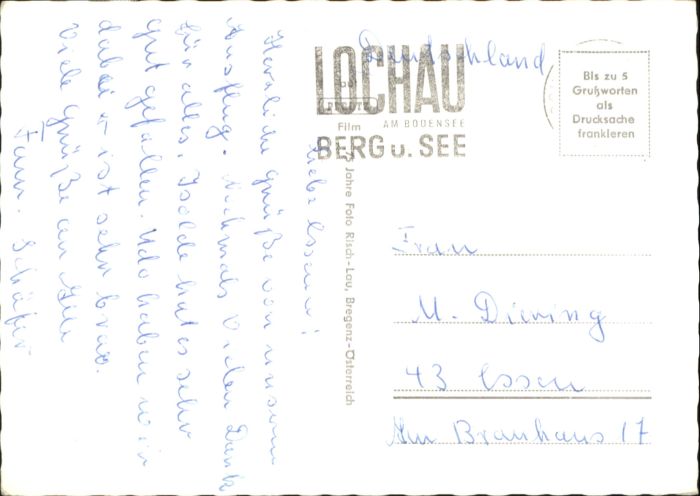 Liebe Essener!
Herzliche Grüße von unserm
Ausflug. Nochmals vielen Dank
für alles. Isolde hat es sehr
gut gefallen. Udo haben wir
dabei er ist sehr brav.
Viele Grüße an Alle
Fam. Schäfer
Deutschland
LOCHAU
AM BODENSEE
BERG u. SEE
Film
Bis zu 5
Grußworten
als
Drucksache
frankieren
Jahre Foto Risch-Lau, Bregenz-Österreich
Frau
M. Diening
43 Essen
Am Brauhaus 17